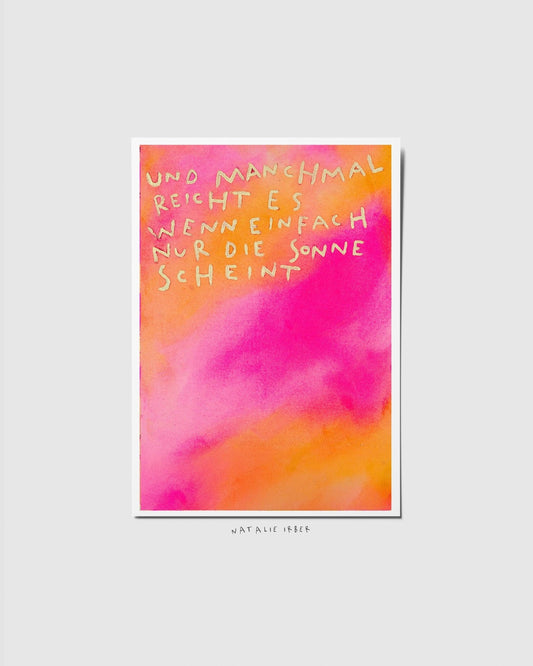 UND MANCHMAL
REICHT ES
WENN EINFACH
NUR DIE SONNE
SCHEINT
NATALIE IRBER